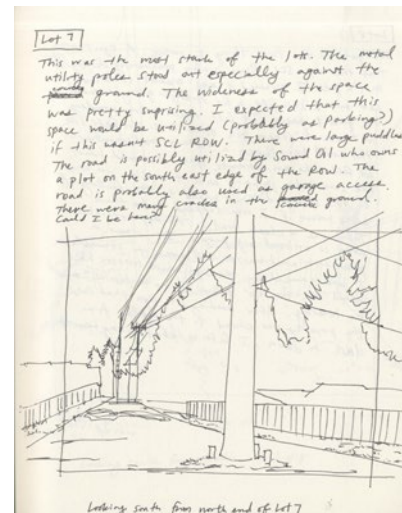 Lot 7
This was the most stark of the lots. The metal
utility poles stood out especially against the
ground. The wideness of the space
was pretty suprising. I expected that this
space would be utilized (probably as parking?)
if this wasnt SCL ROW. There were large puddles
The road is possibly utilized by Sound Oil who owns
a plot on the south east edge of the ROW. The
road is probably also used as garage access.
There were many in the ground.
Could I be here?
Looking south from north end of Lot 7